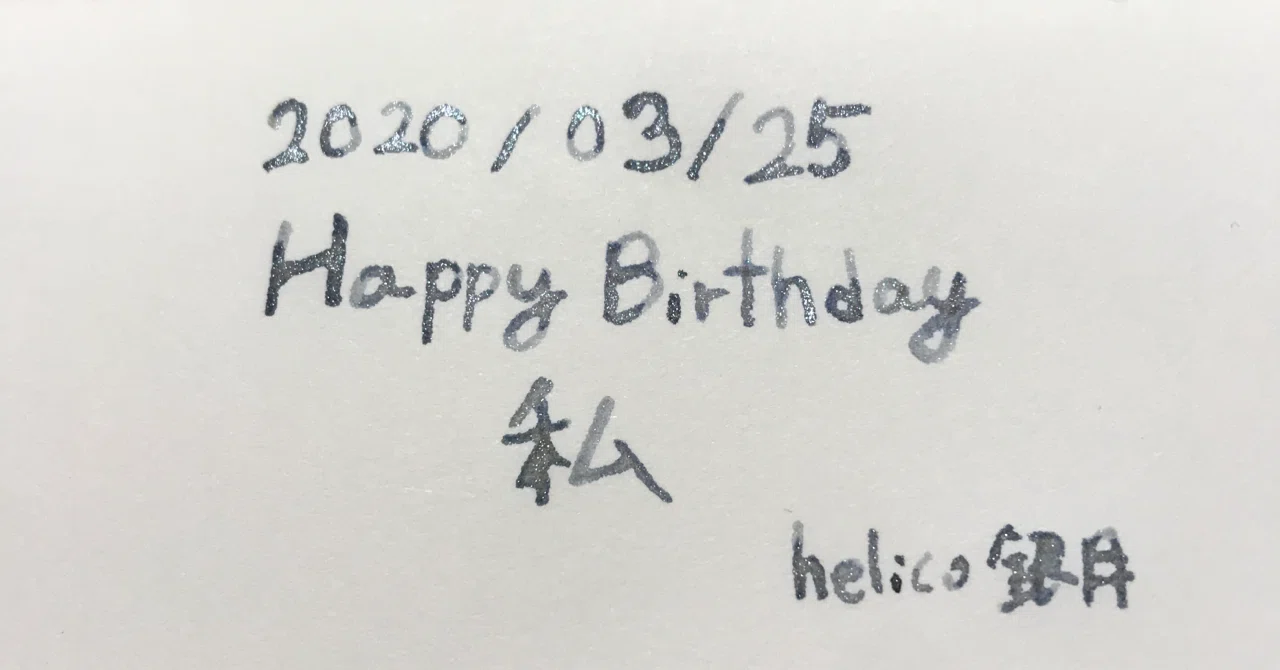 2020/03/25
Happy Birthday
私
helico 銀月